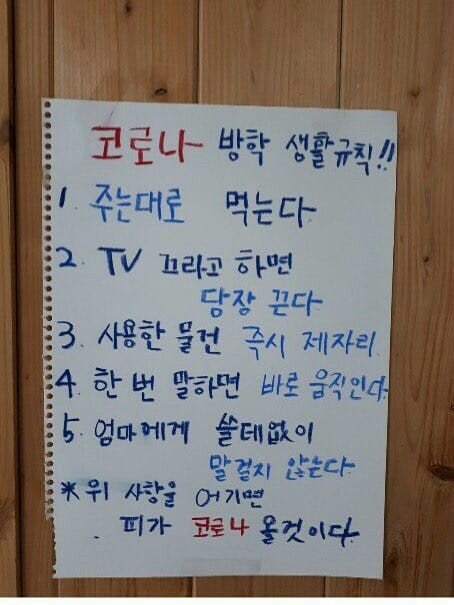 코로나 방학 생활규칙!!
1. 주는대로 먹는다
2. TV 끄라고 하면
당장 끈다.
3. 사용한 물건 즉시 제자리.
4. 한 번 말하면 바로 움직인다.
5. 엄마에게 쓸데없이
말걸지 않는다.
* 위 사항을 어기면
. 피가 코로나 올것이다.